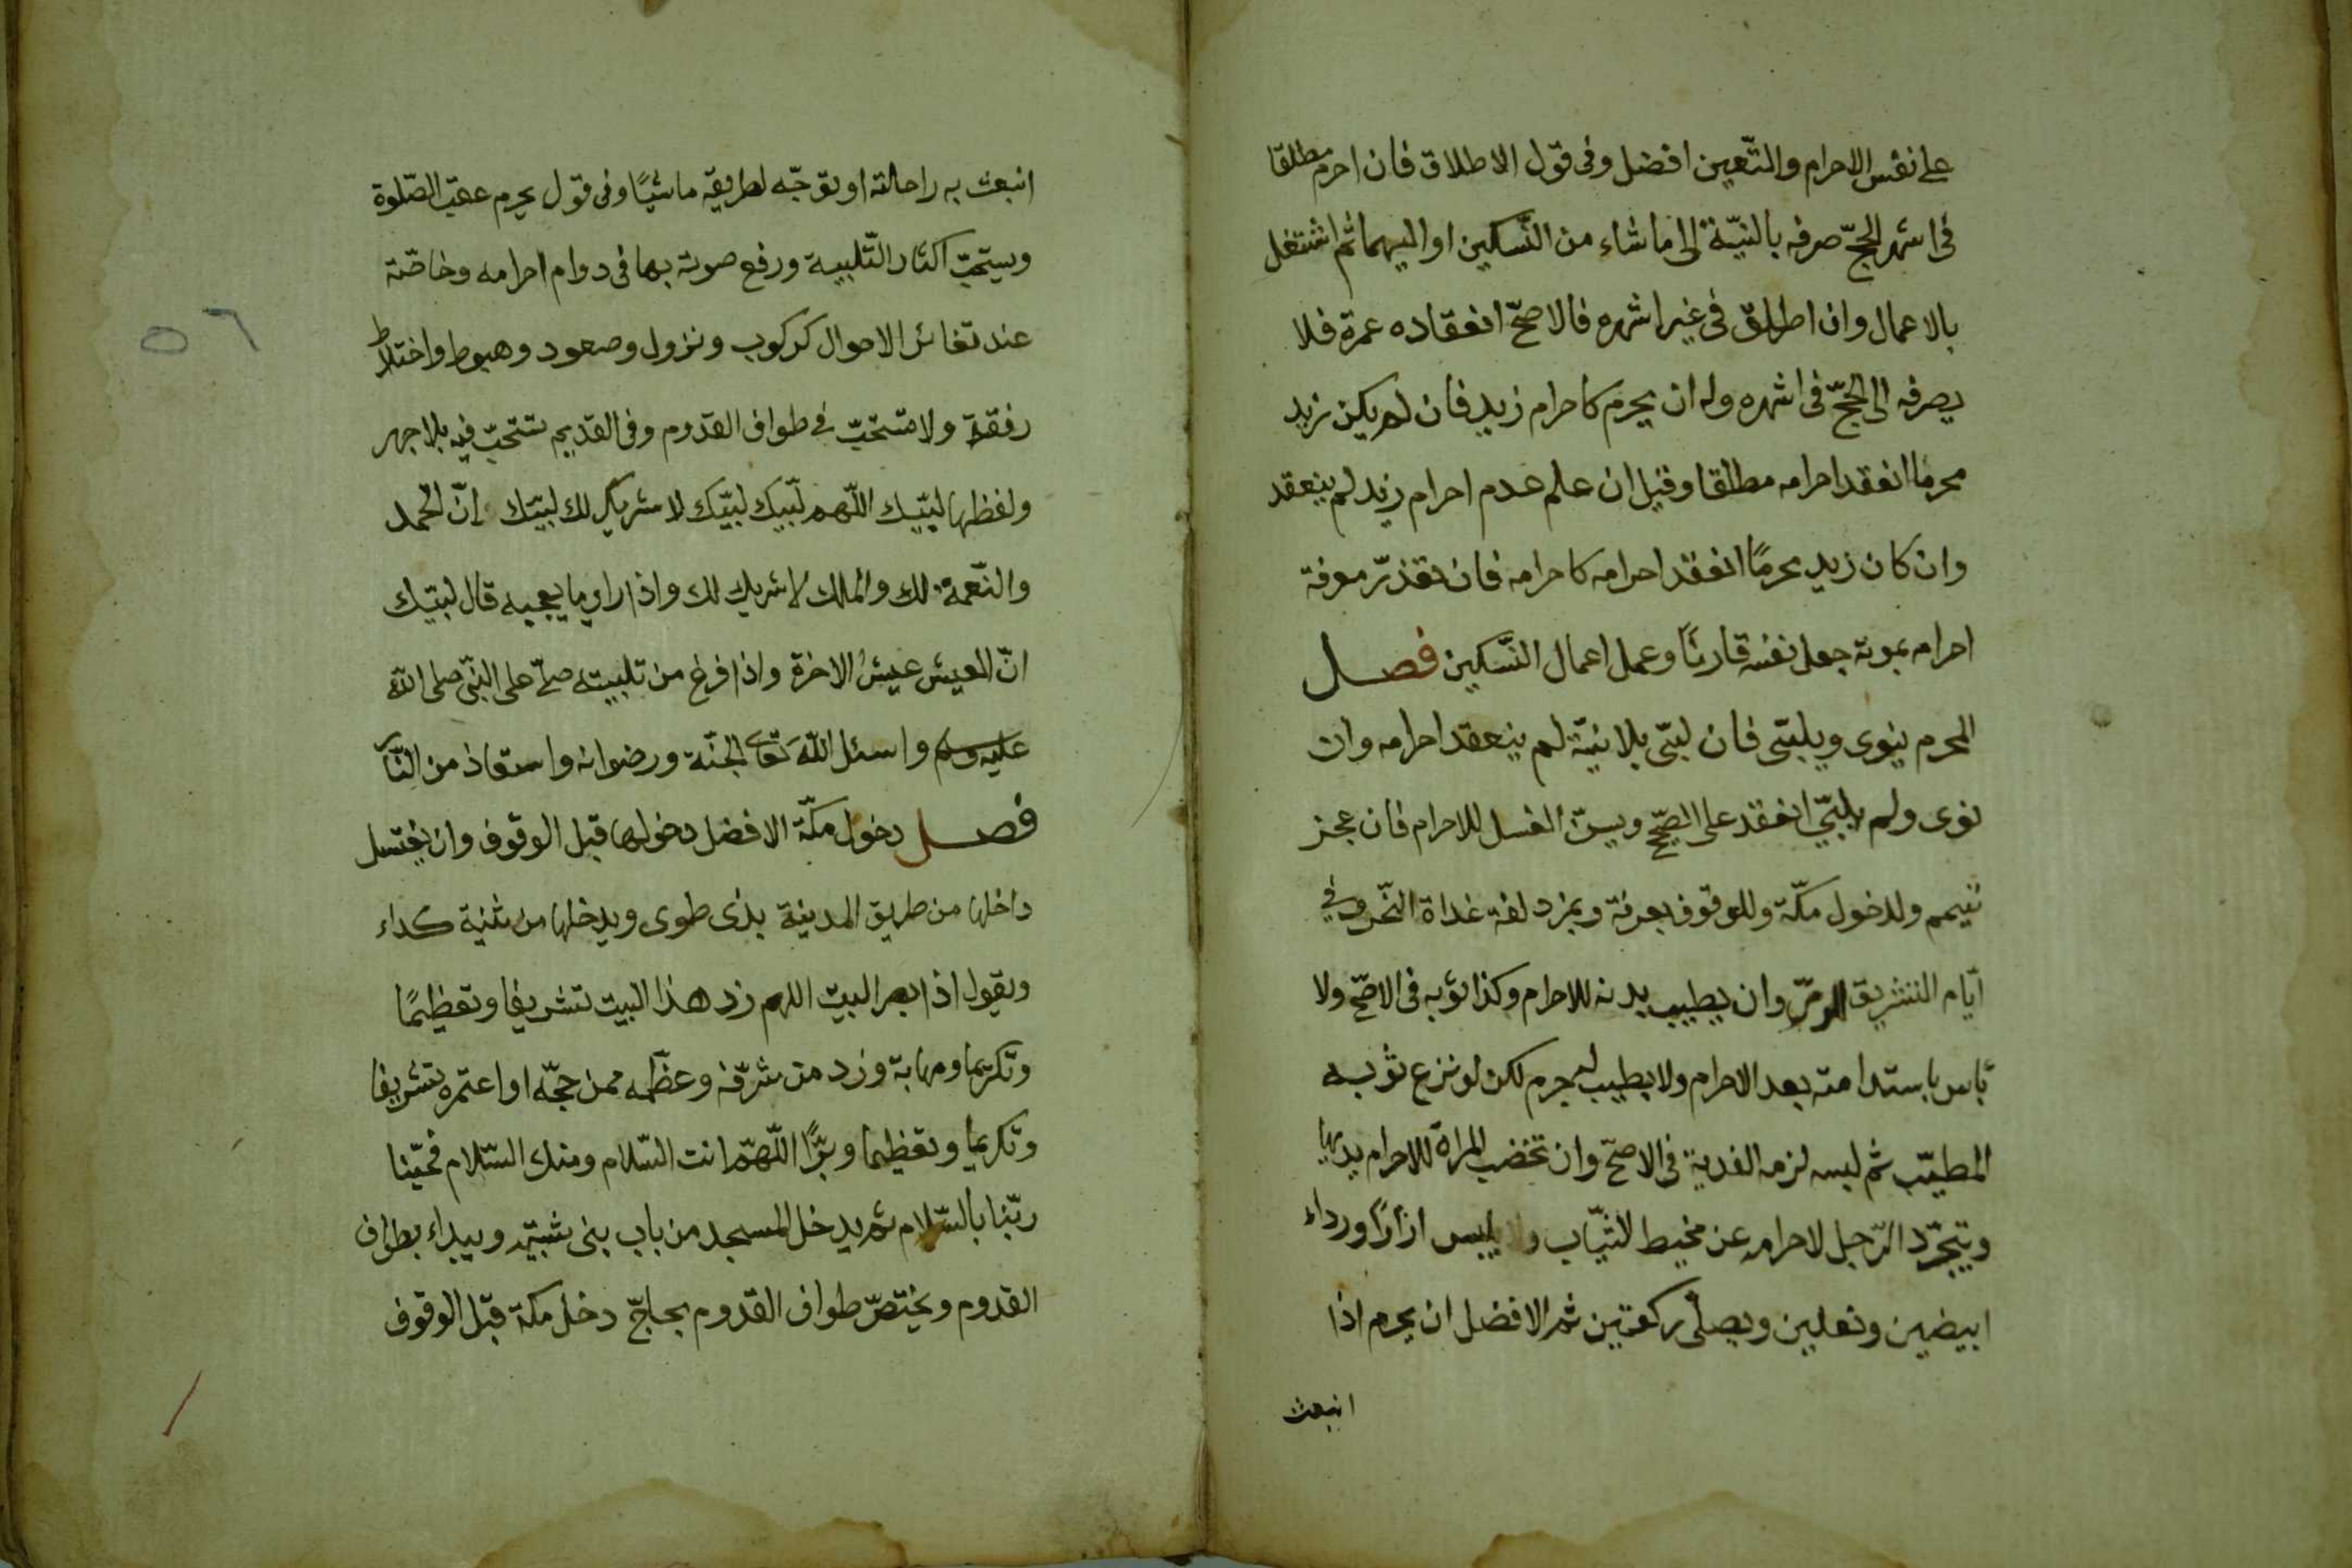 على نفس الاحرام والتّعيين افضل وفى قول الاطلاق فان احرم مطلقا
فى اشهر الحجّ صرفه بالنيّة الى ما شاء من النّسكين او اليهما ثم اشتغل
بالاعمال وان اطلق فى غير اشهره فالاصحّ انعقاده عمرة فلا
يصرفه الى الحجّ فى اشهره وله ان يحرم كاحرام زيد فان لم يكن زيد
محرما انعقد احرامه مطلقا وقيل ان علم عدم احرام زيد لم ينعقد
وان كان زيد محرمًا انعقد احرامه كاحرامه فان تعذّر معرفة
احرامه بموته جعل نفسه قارنًا وعمل اعمال النّسكين فصل
المحرم ينوى ويلبّى فان لبّى بلا نيّة لم ينعقد احرامه وان
نوى ولم يلبّي انعقد على الصّحيح ويسنّ الغسل للاحرام فان عجز
تيمم ولدخول مكّة وللوقوف بعرفة وبمزدلفة غداة النّحر وفي
ايّام التشريق للرمي وان يطيب بدنه للاحرام وكذا ثوبه فى الاصحّ ولا
بأس باستدامته بعد الاحرام ولا بطيب له جرم لكن لو نزع ثوبه
المطيّب ثم لبسه لزمه الفدية فى الاصحّ وان تخضب المراة للاحرام يديها
ويتجرّد الرّجل لاحرامه عن مخيط الثيّاب ويلبس ازارًا ورداء
ابيضين ونعلين ويصلّى ركعتين ثم الافضل ان يحرم اذا
انبعث
انبعث به راحلته او توجّه لطريقه ماشيًا وفى قول يحرم عقب الصّلوة
ويستحبّ اكثار التّلبية ورفع صوته بها فى دوام احرامه وخاصّة
عند تغائر الاحوال كركوب ونزول وصعود وهبوط واختلاط
رفقة ولا تستحبّ فى طواف القدوم وفى القديم تستحبّ فيه بلا جهر
ولفظها لبّيك اللّهم لبّيك لبّيك لا شريك لك لبّيك إنّ الحمد
والنّعمة لك والملك لا شريك لك واذا راى ما يعجبه قال لبّيك
انّ العيش عيش الاخرة واذا فرغ من تلبيته صلّى على النّبى صلى الله
عليه وسلم واسئل اللهَ تعالى الجنّة ورضوانه واستعاذ من النّار
فصل دخول مكّة الافضل دخولها قبل الوقوف وان يغتسل
داخلها من طريق المدينة بذى طوى ويدخلها من ثنية كداء
ويقول اذا ابصر البيت اللهم زد هذا البيت تشريفا وتعظيمًا
وتكريما ومهابة وزد من شرّفه وعظّمه ممن حجّه او اعتمره تشريفا
وتكريما وتعظيما وبرًّا اللّهمّ انت السّلام ومنك السّلام فحيّنا
ربّنا بالسّلام ثم يدخل المسجد من باب بنى شيبة ويبداء بطواف
القدوم ويختصّ طواف القدوم بحاجّ دخل مكة قبل الوقوف
٥٦